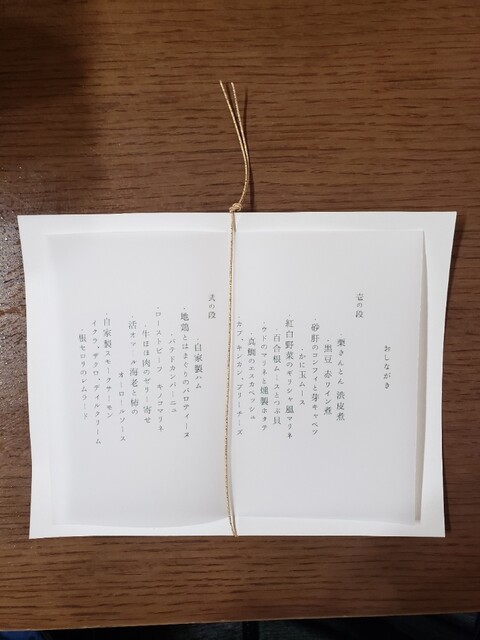 おしながき
壱の段
・栗きんとん 渋皮煮
・黒豆 赤ワイン煮
・砂肝のコンフィと芽キャベツ
・かに玉ムース
・紅白野菜のギリシャ風マリネ
・百合根ムースとつぶ貝
・ウドのマリネと燻製ホタテ
・真鯛のエスカベッシュ
・カブ、キンカン、ブリーチーズ
弐の段
・自家製ハム
・地鶏とはまぐりのバロティーヌ
・パテドカンパーニュ
・ローストビーフ キノコマリネ
・牛ほほ肉のゼリー寄せ
・活オマール海老と柿の
オーロールソース
・自家製スモークサーモン
イクラ、ザクロ、ディルクリーム
・根セロリのレムラード